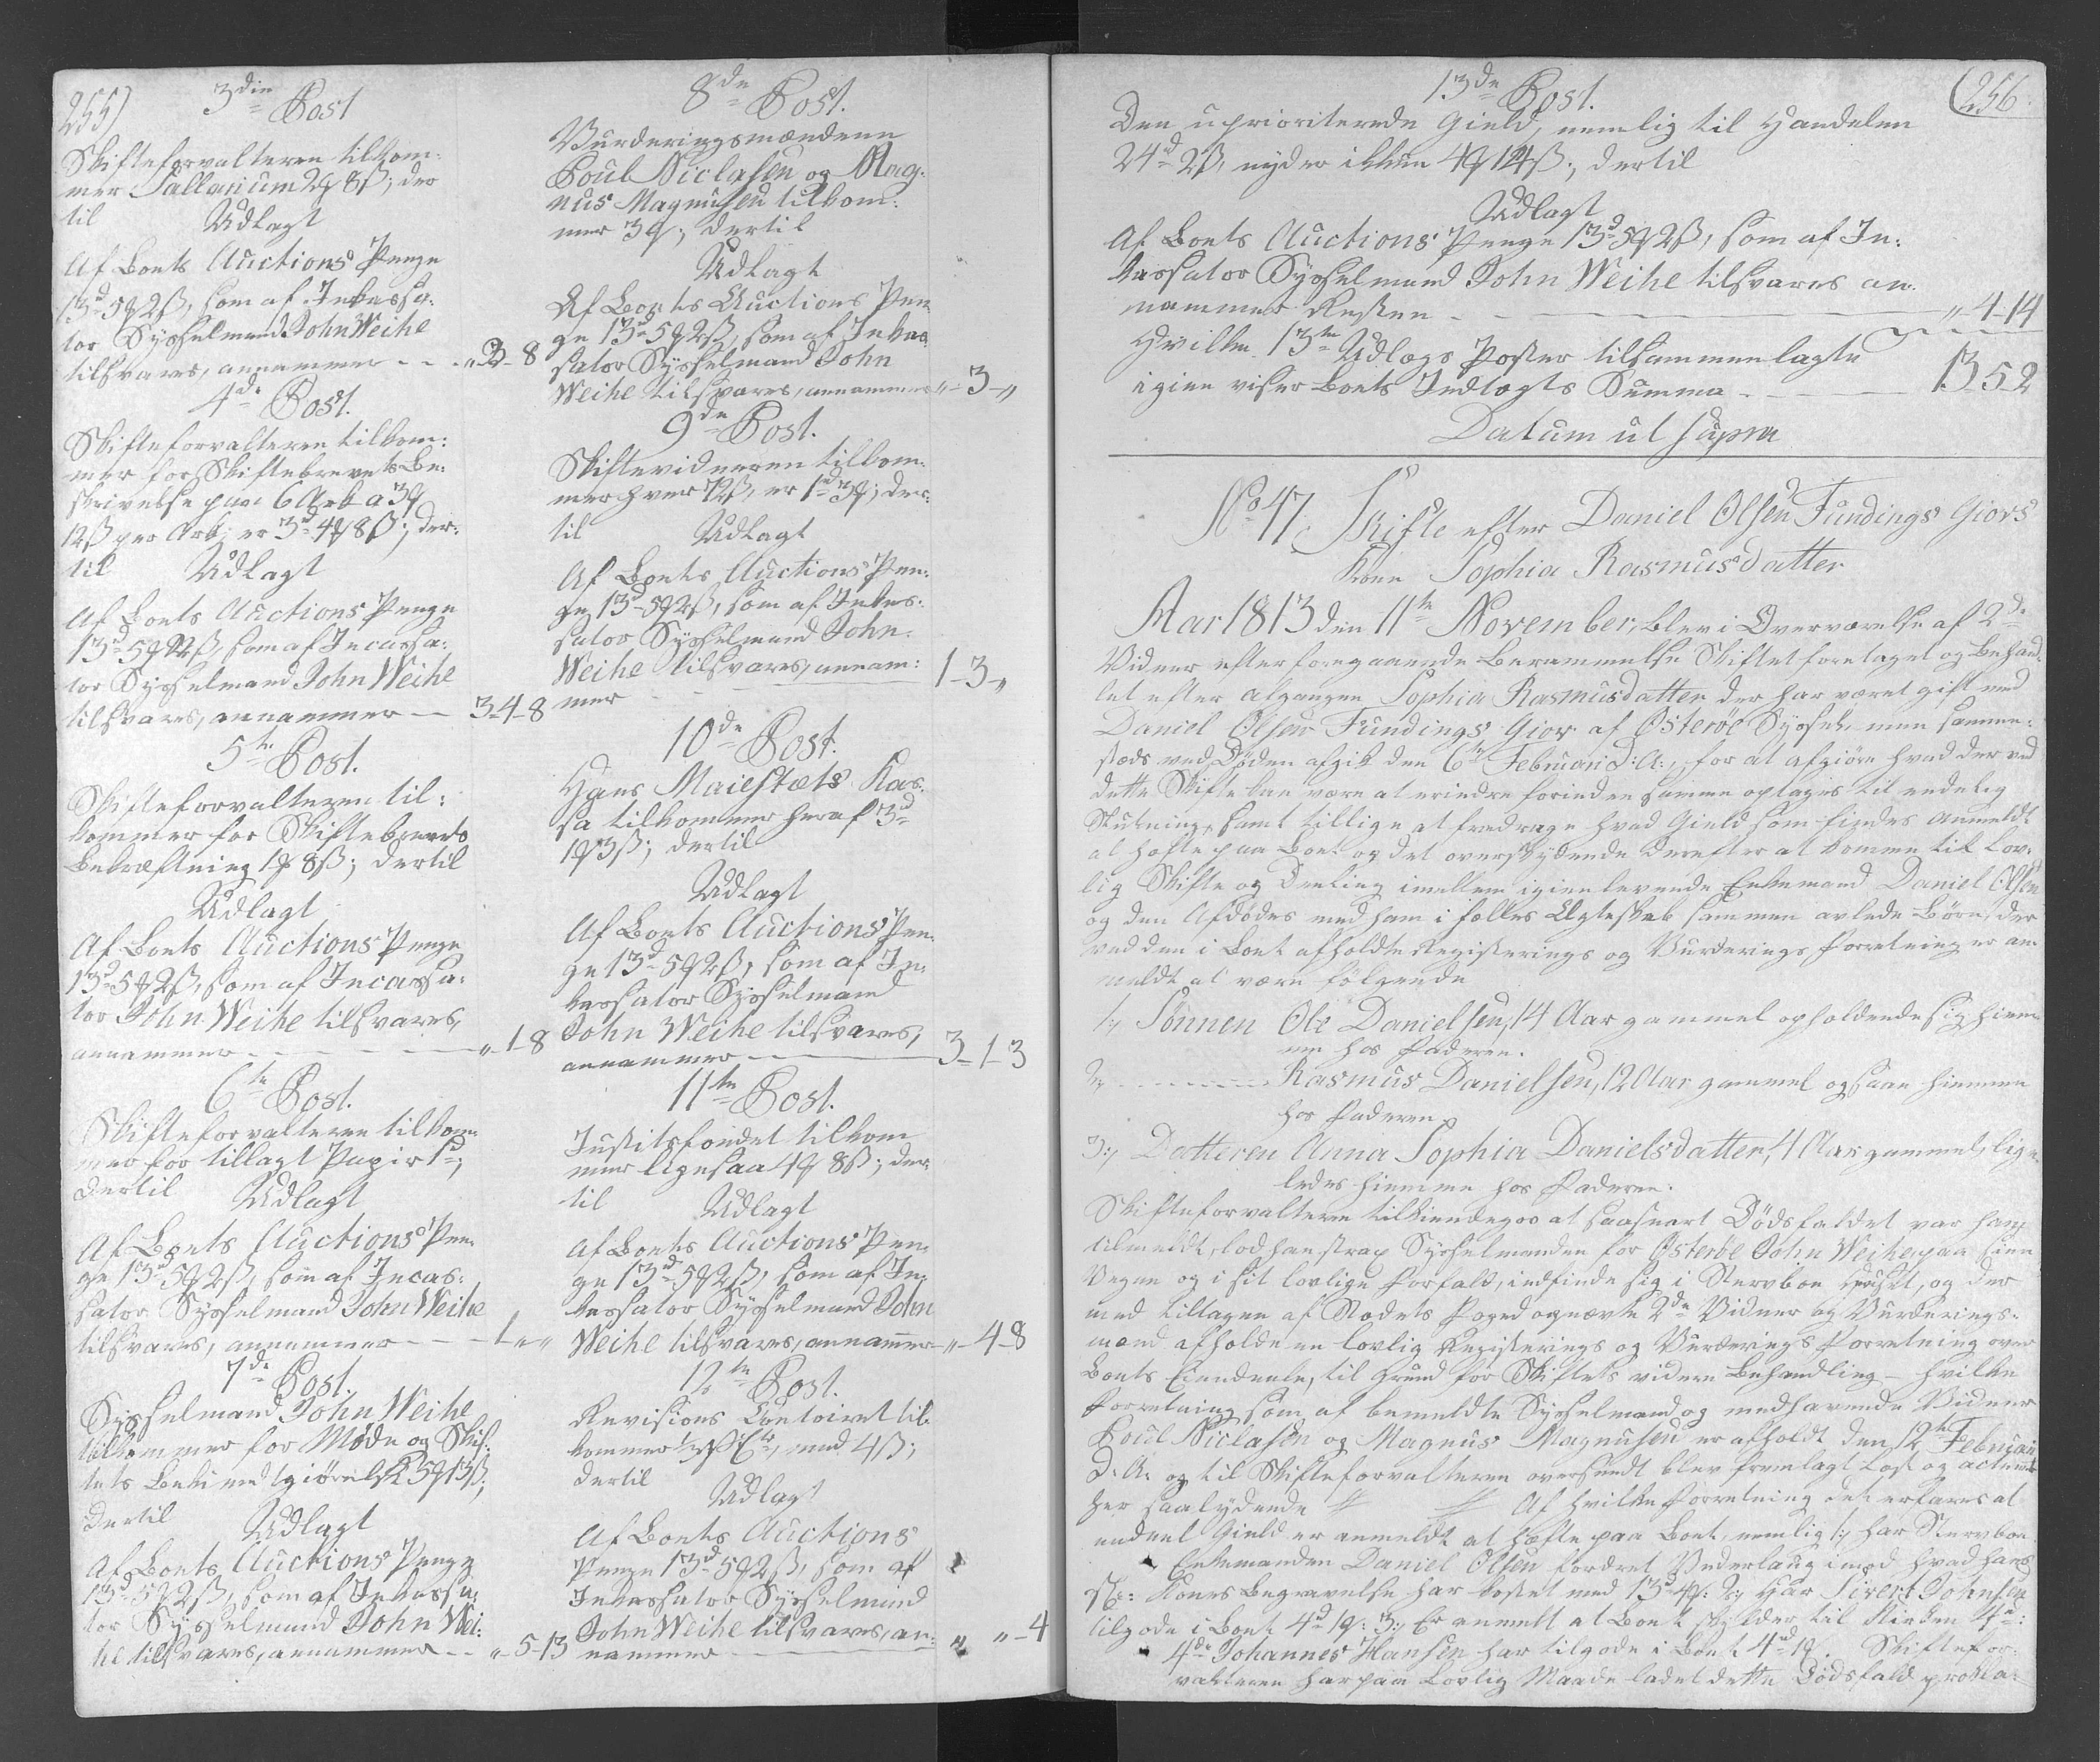 255)
3die Post
Skifteforvalteren tilkom:
mer Sallarium 2ꝗ 8ß; der
til Udlagt
Af Boets Auctions Penge
13d 5ꝗ 2ß, som af Inkassa:
tor Sysselmand John Weihe
tilsvares, annammer - - „ 2-8
4de Post.
Skifteforvalteren tilkom:
mer for Skiftebrevets Be:
skrivelse paa 6 Ark a 3ꝗ
12ß per Ark, er 3d 4ꝗ 8ß; der:
til Udlagt
Af Boets Auctions Penge
13d 5ꝗ 2ß, som af Incassa:
tor Sysselmand John Weihe
tilsvares, annammer — 3-4-8
5te Post.
Skifteforvalteren til:
kommer for Skiftebrevets
Bekræftning 1ꝗ 8ß; dertil
Udlagt
Af Boets Auctions Penge
13d 5ꝗ 2ß, som af Incassa:
tor John Weihe tilsvares,
annammer - - - - „ 1-8
6te Post.
Skifteforvalteren tilkom:
mer for tillagt Papir 1d;
dertil Udlagt
Af Boets Auctions Pen:
ge 13d 5ꝗ 2ß, som af Incas:
sator Sysselmand John Weihe
tilsvares, annammer - - 1 „ „
7de Post.
Sysselmand John Weihe
tilkommer for Møde og Skif:
tets 5ꝗ 13ß;
dertil Udlagt
Af Boets Auctions Penge
13d 5ꝗ 2ß, som af Inkassa:
tor Sysselmand John Wei:
he tilsvares, annammer - - „ 5-13
8de Post.
Vurderingsmændene
Poul Niclasen og Mag:
nus Magnusen tilkom:
mer 3ꝗ; dertil
Udlagt
Af Boets Auctions Pen:
ge 13d 5ꝗ 2ß, som af Inkas:
sator Sysselmand John
Weihe tilsvares, annammer „-3-„
9de Post.
Skiftevidnerne tilkom:
mer hver 72ß, er 1d 3ꝗ; der:
til Udlagt
Af Boets Auctions Pen:
ge 13d 5ꝗ 2ß, som af Inkas:
sator Sysselmand John
Weihe tilsvares, annam:
mer - - - 1-3-„
10de Post.
Hans Maiestæts Kas:
sa tilkommer heraf 3d
1ꝗ 3ß; dertil
Udlagt
Af Boets Auctions Pen:
ge 13d 5ꝗ 2ß, som af In:
kassator Sysselmand
John Weihe tilsvares,
annammer — 3-1-3
11te Post.
Justitsfondet tilkom
mer ligesaa 4ꝗ 8ß; der
til Udlagt
Af Boets Auctions Pen:
ge 13d 5ꝗ 2ß, som af In:
kassator Sysselmand John
Weihe tilsvares, annammer „-4-8
12te Post.
Revisions Contoiret til
kommer med 4ß;
dertil
Udlagt
Af Boets Auctions
Penge 13d 5ꝗ 2ß, som af
Inkassator Sysselmand
John Weihe tilsvares, an:
nammer - - - „ „-4
(256
13de Post.
Den uprioriterede Gield, nemlig til Handelen
24d 2ß, nyder ikkun 4ꝗ 14ß; dertil
Udlagt
Af Boets Auctions Penge 13d 5ꝗ 2ß, som af In:
kassator Sysselmand John Weihe tilsvares an:
nammer Resten - - - - „ 4-14
Hvilke 13ten Udlægs Poster tilsammenlagte
igien viser Boets Indtægts Summa - - - 13 5 2
Datum ut supra
No 47. Skifte efter Daniel Olsen Fundings Giovs
Kone Sophia Rasmusdatter
Aar 1813 den 11te November, blev i Overværelse af 2de
Vidner efter foregaaende Berammelse Skiftet foretaget og behand:
let efter afgangen Sophia Rasmusdatter der har været gift med
Daniel Olsen Fundings Giov af Österöe Syssel, men samme:
steds ved Døden afgik den 6te Februari d: A:, for at afgiøre hvad der ved
dette Skifte kan være at erindre forinden samme optages til endelig
Slutning, samt tillige at fradrage hvad Gield som findes anmeldt
at hæfte paa Boet og det overskydende derefter at komme til lov:
lig Skifte og Deeling imellem igienlevende Enkemand Daniel Olsen
og den Afdødes med ham i fælles Ægteskab sammen avlede Børn, der
ved den i Boet afholdte Registerings og Vurderings Forretning er an:
meldt at være følgende
1:, Sönnen Ole Danielsen, 14 Aar gammel opholdende sig hiem:
me hos Faderen.
2:, ——— Rasmus Danielsen, 12 Aar gammel ogsaa hiemme
hos Faderen.
3:, Datteren Anna Sophia Danielsdatter, 4 Aar gammel, lige:
ledes hiemme hos Faderen.
Skifteforvalteren tilkiendegav at saasnart Dödsfaldet var ham
tilmeldt, lod han strax Sysselmanden for Österöe John Weihe paa sine
Vegne og i sit lovlige Forfald, indfinde sig i Stervboe Huset, og der
med tiltagen af Stædets Foged og 2de Vidner og Vurderings:
mænd afholde en lovlig Registerings og Vurderings Forretning over
Boets Eiendeele, til Grund for Skiftets videre Behandling — hvilken
Forretning som af bemeldte Sysselmand og medhavende Vidner
Poul Niclasen og Magnus Magnusen er afholdt den 12te Februarii
d: A: og til Skifteforvalteren oversendt blev fremlagt læst og
her saalydende Af hvilken Forretning det erfares at
endeel Gield er anmeldt at hæfte paa Boet, nemlig 1:, har Stervboe
Enkemanden Daniel Olsen fordret Vederlaug imod hvad hans
Kones Begravelse har kostet med 13d 4ꝗ: 2:, Har Sivert Johnsen
tilgode i Boet 4d 1ꝗ: 3:, Er anmeldt at Boet skylder til Kirken
4de Johannes Hansen har tilgode i Boet 4d 1ꝗ. Skiftefor:
valteren har paa lovlig Maade ladet dette Dödsfald prokla: